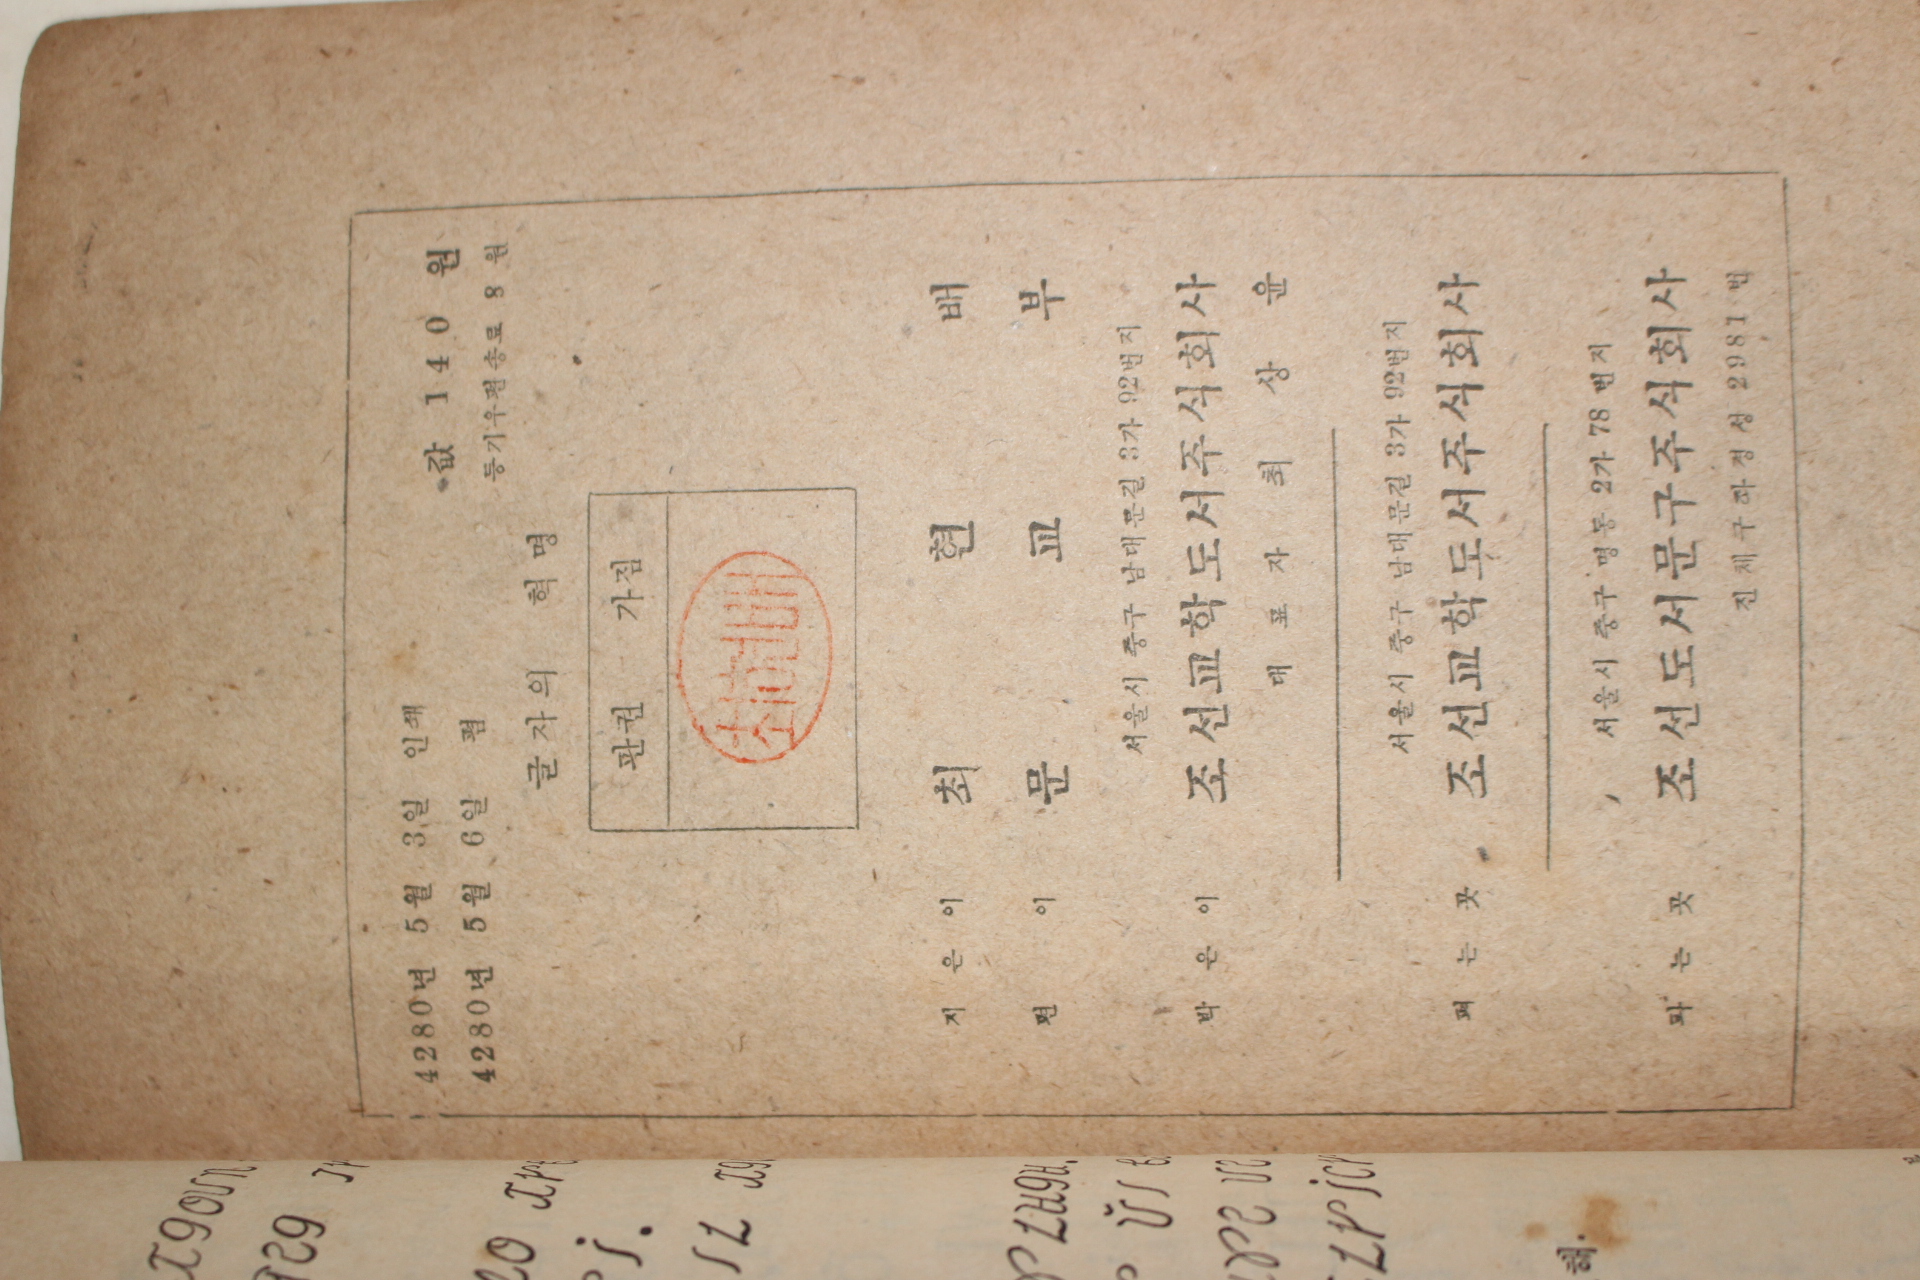 4280년 5월 3일 인쇄
4280년 5월 6일 펌
값 140 원
등기우편송료 8 원
글자의 혁명
판권 가짐
지은이 최현배
편이 문교부
서울시 중구 남대문길 3가 92번지
박은이 조선교학도서주식회사
대표자 최상윤
서울시 중구 남대문길 3가 92번지
펴는곳 조선교학도서주식회사
서울시 중구 명동 2가 78 번지
파는곳 조선도서문구주식회사
진체구좌경성 2981 번
해.